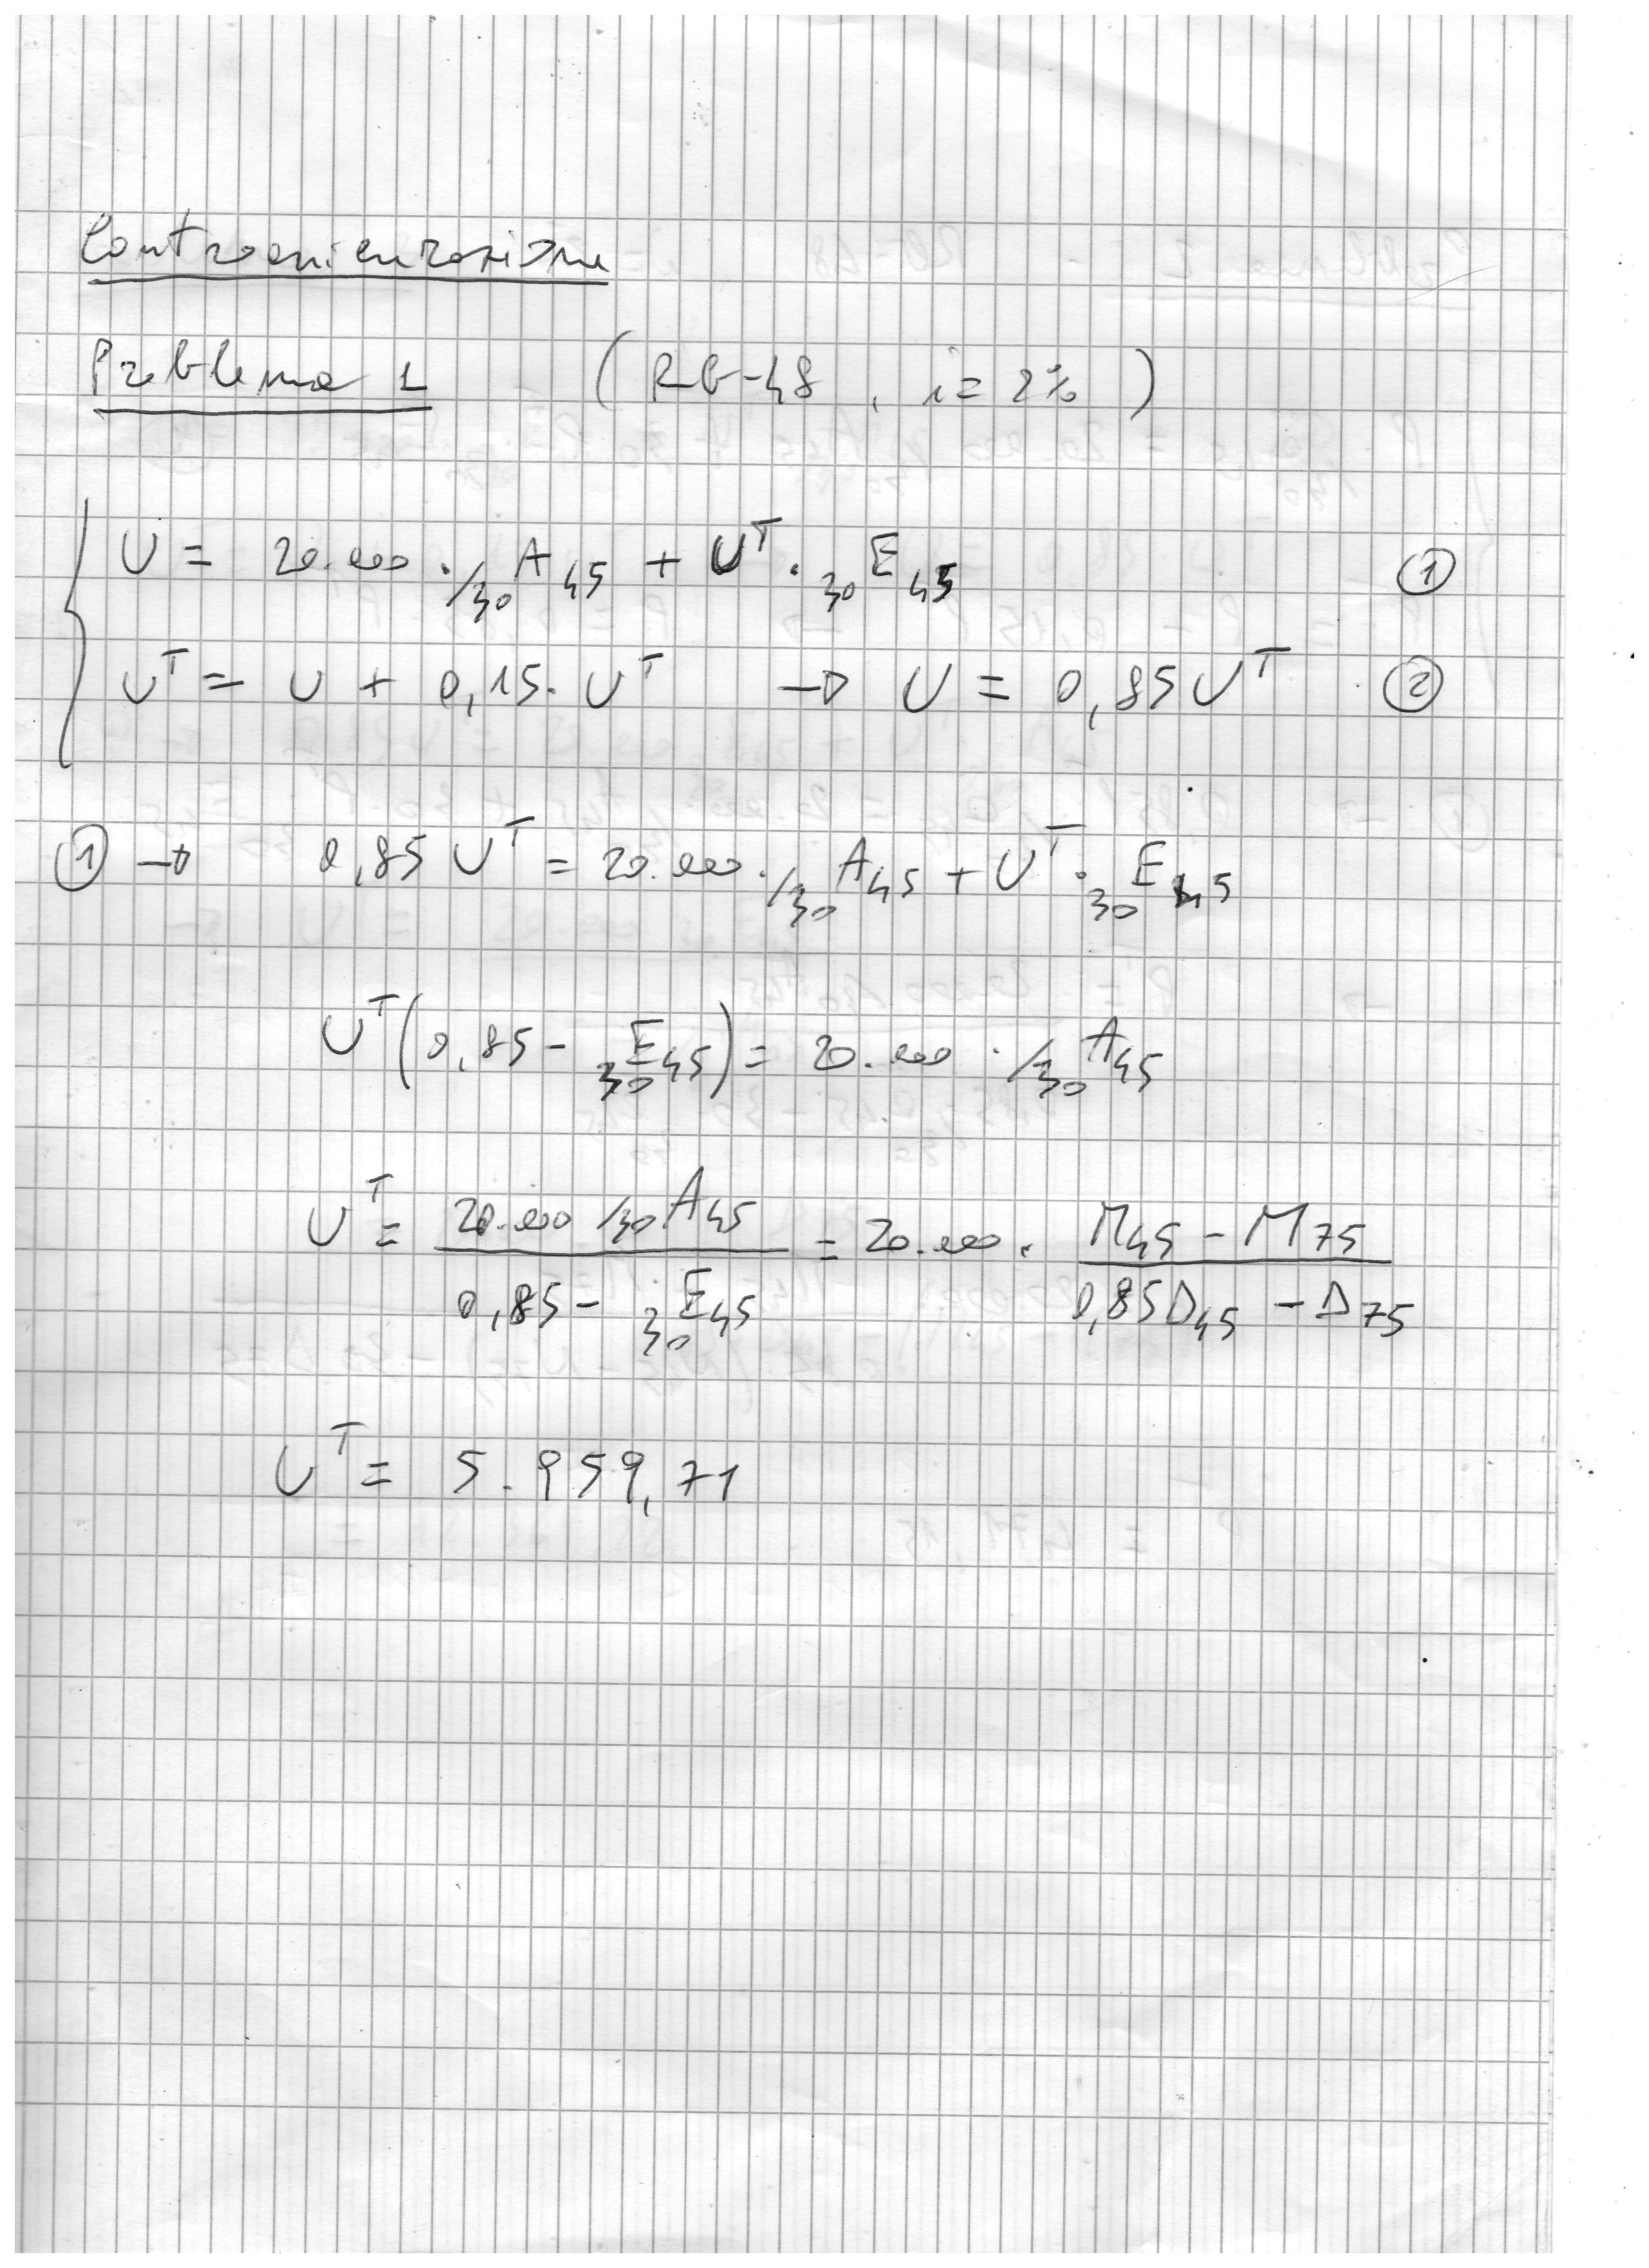 Controassicurazione
Problema 1 (RG-48, i=2%)
U = 20.000 · /30 A 45 + U^T · 30 E 45 ①
U^T = U + 0,15 · U^T → U = 0,85 U^T ②
① → 0,85 U^T = 20.000 · /30 A 45 + U^T · 30 E 45
U^T (0,85 - 30 E 45) = 20.000 · /30 A 45
U^T = 20.000 /30 A 45 / 0,85 - 30 E 45 = 20.000 · M 45 - M 75 / 0,85 D 45 - D 75
U^T = 5.959,71